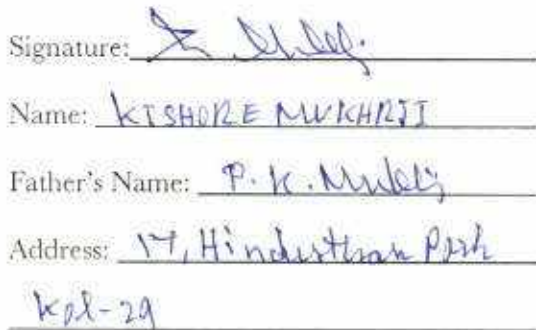 Signature:
Name: KISHORE MUKHRJI
Father's Name: P. K. Mukherji
Address: 17, Hindusthan Park
Kol-29